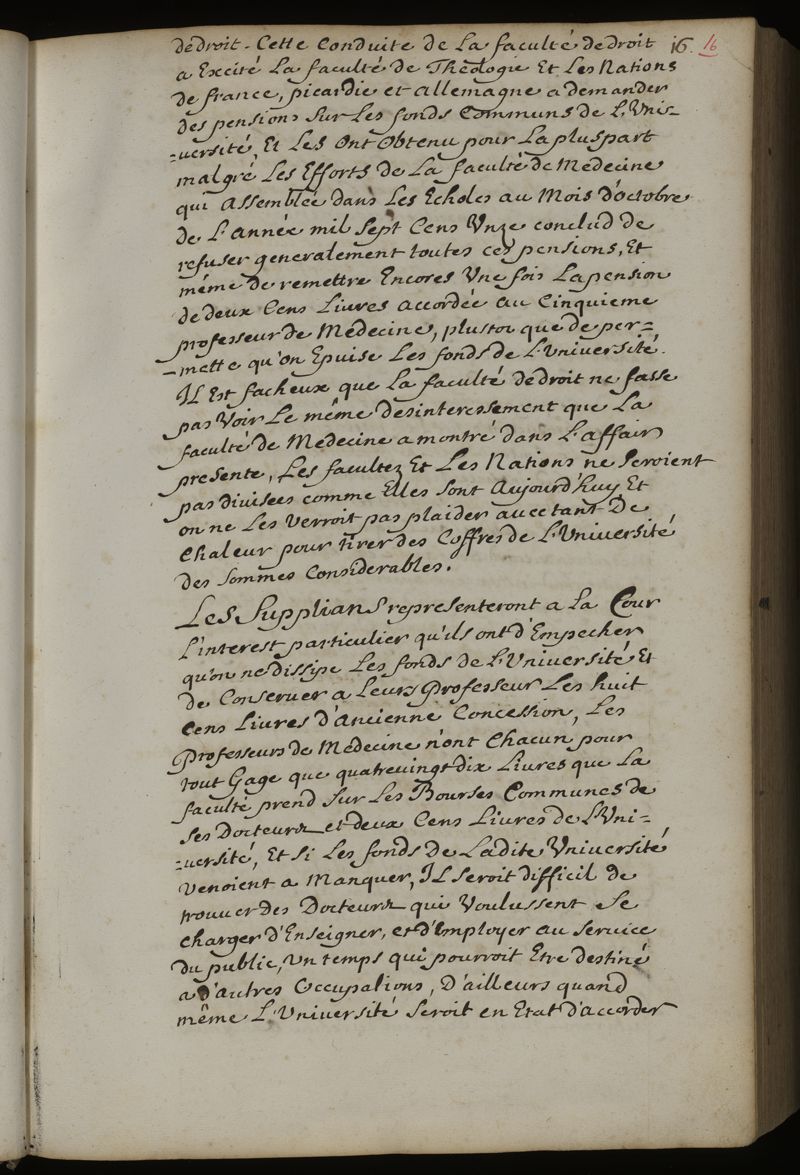 dedroit. Cette Conduite de La faculté dedroit 16. 16
a Excité La faculté de Théologie Et Les Nations
de france, picardie et allemagne a demander
des pensions Sur Les fonds Communs de L'Uni-
-uersité, Et Les Ont Obtenu pour La pluspart
malgré Les Efforts de La faculté de Medecine
qui Assemblée dans Les Echoles au Mois d'octobre
de L'année mil Sept Cens Unze conclud de
refuser generalement toutes ces pensions, Et
même de remettre Encores Une fois La pension
de deux Cens Liures accordée au Cinquieme
professeur de Medecine, plustou que de per=
-mette qu'on Epuise Les fonds de L'Université.
IL Est facheux que La faculté dedroit ne fasse
pas Voir Le même desinteressement que La
faculté de Medecine a montré dans L'affair
presente, Les facultez Et Les Nations ne Seroient
pas diuisees comme Elles Sont Aujourd'huy Et
on ne Les verroit pas plaider auec tant De
Chaleur pour tirer des Coffres de L'Uniuersité
Des Sommes Considerables.
Les Supplians representeront a La Cour
L'interest particulier qu'ils ont d'Empecher
qu'on ne dissipe Les fonds de L'Uniuersité Et
de Conseruer a Leurs Professeur Les huit
Cens Liures d'ancienne Concession, Les
Professeurs de Medecine n'ont Chacun pour
tout Gage que quatreuingt dix Liures que La
faculté prend Sur Les Bourses Communes de
Ses Docteurs et deux Cens Liures de L'Uni=
-uersité, Et Si Les fonds De Ladite Vniuersité
Venoient a Manquer, IL Seroit difficil de
trouuer des Docteurs qui Voulussent Se
Charger d'Enseigner, et d'Employer au Seruice
du public, Un temps qui pourroit Etre destiné
a d'autres Occupations, D'ailleurs quand
même L'Vniuersité Seroit en Etat d'accorder